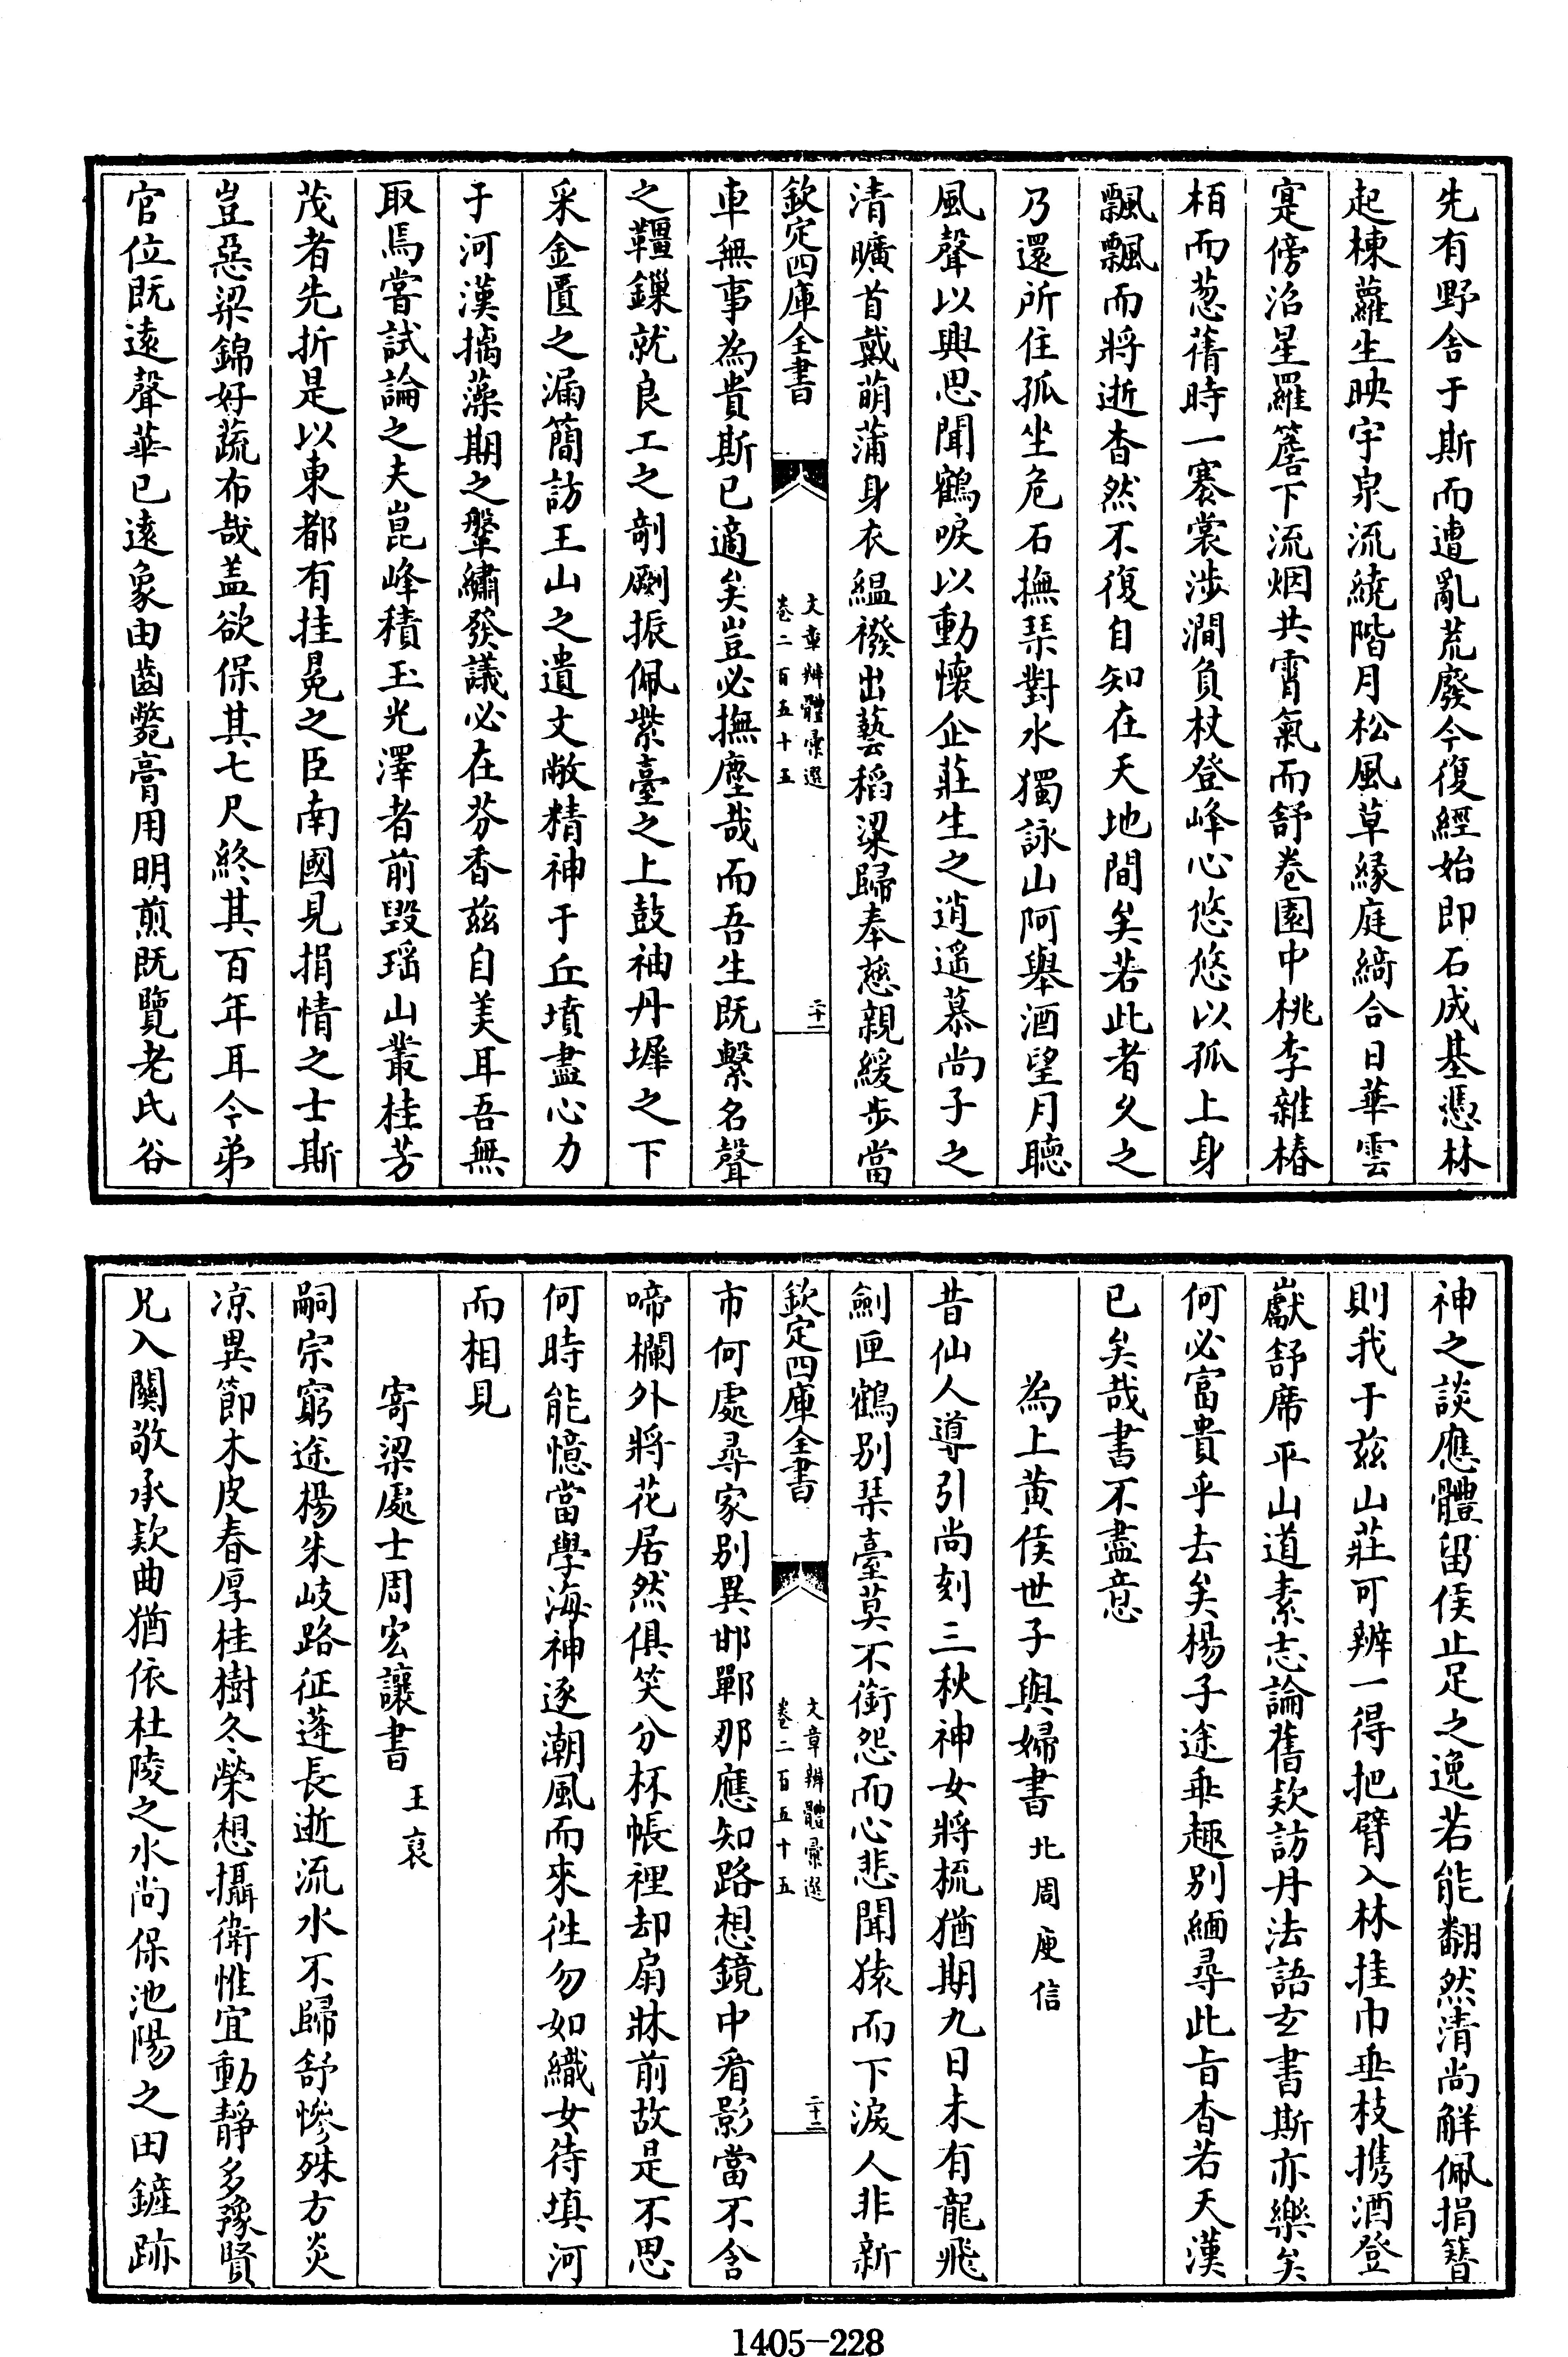 先有野舍于斯而遭亂荒廢今復經始即石成基憑林
起棟蘿生映宇泉流繞階月松風草緣庭綺合日華雲
寔傍沼星羅簷下流烟共霄氣而舒卷園中桃李雜椿
栢而葱蒨時一褰裳涉澗負杖登峰心悠悠以孤上身
飄飄而將逝杳然不復自知在天地間矣若此者久之
乃還所住孤坐危石撫琹對水獨詠山阿舉酒望月聽
風聲以興思聞鶴唳以動懷企莊生之逍遥慕尚子之
清曠首戴萌蒲身衣緼襏出藝稻粱歸奉慈親緩步當
欽定四庫全書
文章辨體彙選
卷二百五十五
二十一
車無事為貴斯已適矣豈必撫塵哉而吾生既繫名聲
之韁鏁就良工之剞劂振佩紫臺之上鼓袖丹墀之下
采金匱之漏簡訪王山之遺文敝精神于丘墳盡心力
于河漢摛藻期之鞶繡發議必在芬香兹自美耳吾無
取焉嘗試論之夫崑峰積玉光澤者前毀瑶山叢桂芳
茂者先折是以東都有挂冕之臣南國見捐情之士斯
豈惡梁錦好蔬布哉盖欲保其七尺終其百年耳今弟
官位既逺聲華已逺象由齒斃膏用明煎既覽老氏谷
神之談應體留侯止足之逸若能翻然清尚解佩捐簪
則我于兹山莊可辨一得把臂入林挂巾垂枝携酒登
巘舒席平山道素志論舊欵訪丹法語玄書斯亦樂矣
何必富貴乎去矣楊子途乖趣别緬尋此旨杳若天漢
已矣哉書不盡意
為上黄侯世子與婦書 北周庾信
昔仙人導引尚刻三秋神女將梳猶期九日未有龍飛
劍匣鶴别琹臺莫不銜怨而心悲聞猿而下淚人非新
欽定四庫全書
文章辨體彙選
卷二百五十五
二十二
市何處尋家别異邯鄲那應知路想鏡中看影當不含
啼欄外將花居然俱笑分杯帳裡却扇牀前故是不思
何時能憶當學海神逐潮風而來徃勿如織女待填河
而相見
寄梁處士周宏讓書 王裒
嗣宗窮途楊朱岐路征蓬長逝流水不歸舒慘殊方炎
凉異節木皮春厚桂樹冬榮想攝衛惟宜動靜多豫賢
兄入關敬承欵曲猶依杜陵之水尚保池陽之田鏟跡
1405-228